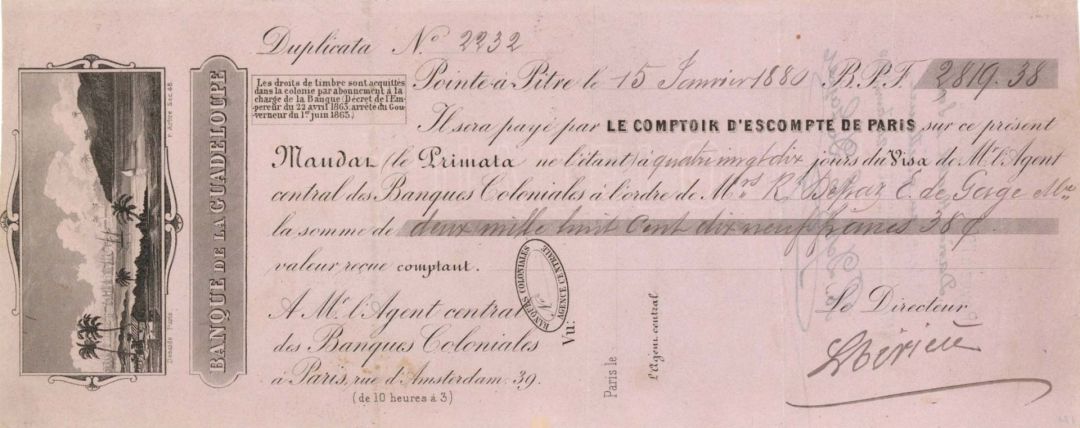 Duplicata N.º 2232
Les droits de timbre sont acquittés
dans la colonie par abonnement à la
charge de la Banque (Décret de l'Em-
pereur du 22 avril 1863, arrêté du Gou-
verneur du 1er juin 1863.)
Pointe-à-Pitre le 15 Janvier 1880 B.P.F. 2819.38
Il sera payé par LE COMPTOIR D'ESCOMPTE DE PARIS sur ce présent
Mandat (le Primata ne l'étant) à quatre vingt dix jours du Visa de Mr. l'Agent
central des Banques Coloniales à l'ordre de Mrs Rl Depaz E. de
la somme de deux mille huit cent dix neuf francs 38 c
valeur reçue comptant.
A Mr. l'Agent central
des Banques Coloniales
à Paris, rue d'Amsterdam. 39.
(de 10 heures à 3)
BANQUE DE LA GUADELOUPE
BANQUES COLONIALES
AGENCE CENTRALE
Vu:
Paris le
l'Agent central
Le Directeur